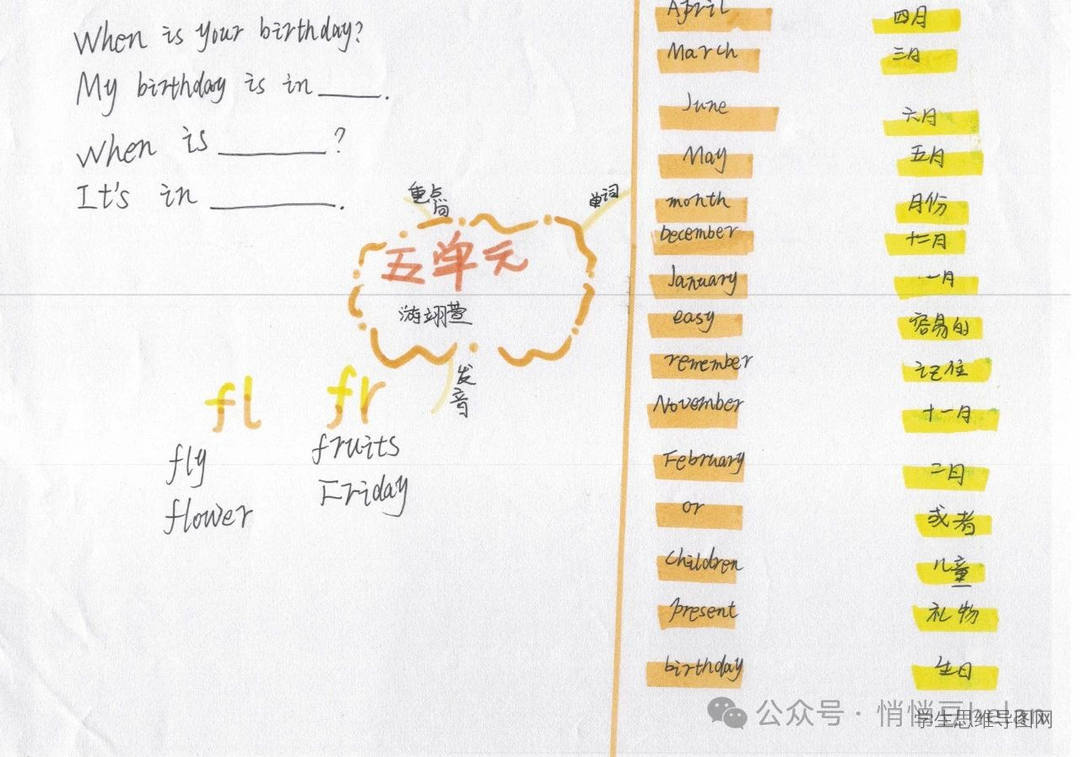 When is your birthday?
My birthday is in ____.
When is ______?
It's in ________.
重点句
单词
五单元
游翊萱
发音
fl
fr
fly
fruits
flower
Friday
April 四月
March 三月
June 六月
May 五月
month 月份
December 十二月
January 一月
easy 容易的
remember 记住
November 十一月
February 二月
or 或者
children 儿童
present 礼物
birthday 生日
公众号 · 悄悄豆
学生思维导图网